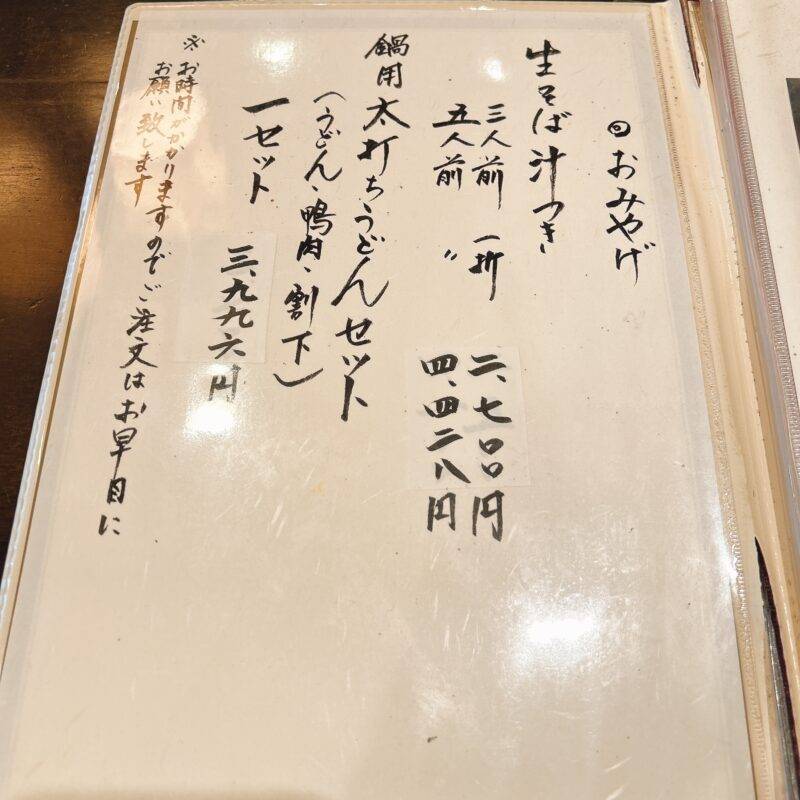 ◉おみやげ
生そば汁つき
三人前 一折 二、七〇〇円
五人前 〃 四、四二八円
鍋用太打ちうどんセット
(うどん、鴨肉、割下)
一セット 三、九九六円
※お時間がかかりますのでご注文はお早目に
お願い致します